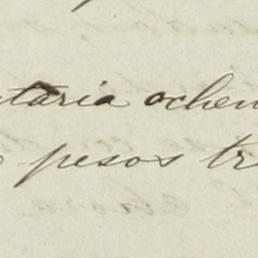 ntaria ochen
pesos tre